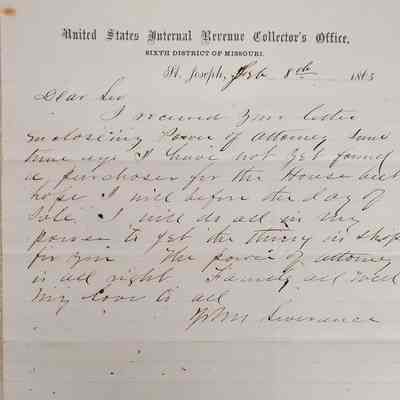 United States Internal Revenue Collector's Office,
SIXTH DISTRICT OF MISSOURI.
St. Joseph, Feb 8th 1865
Dear Sir
I received your letter
enclosing Power of Attorney some
time ago I have not yet found
a purchaser for the House but
hope I will before the day of
Sale. I will do all in my
power to get the thing in shape
for you The power of attorney
is all right Family all well
My love to all
John Severance